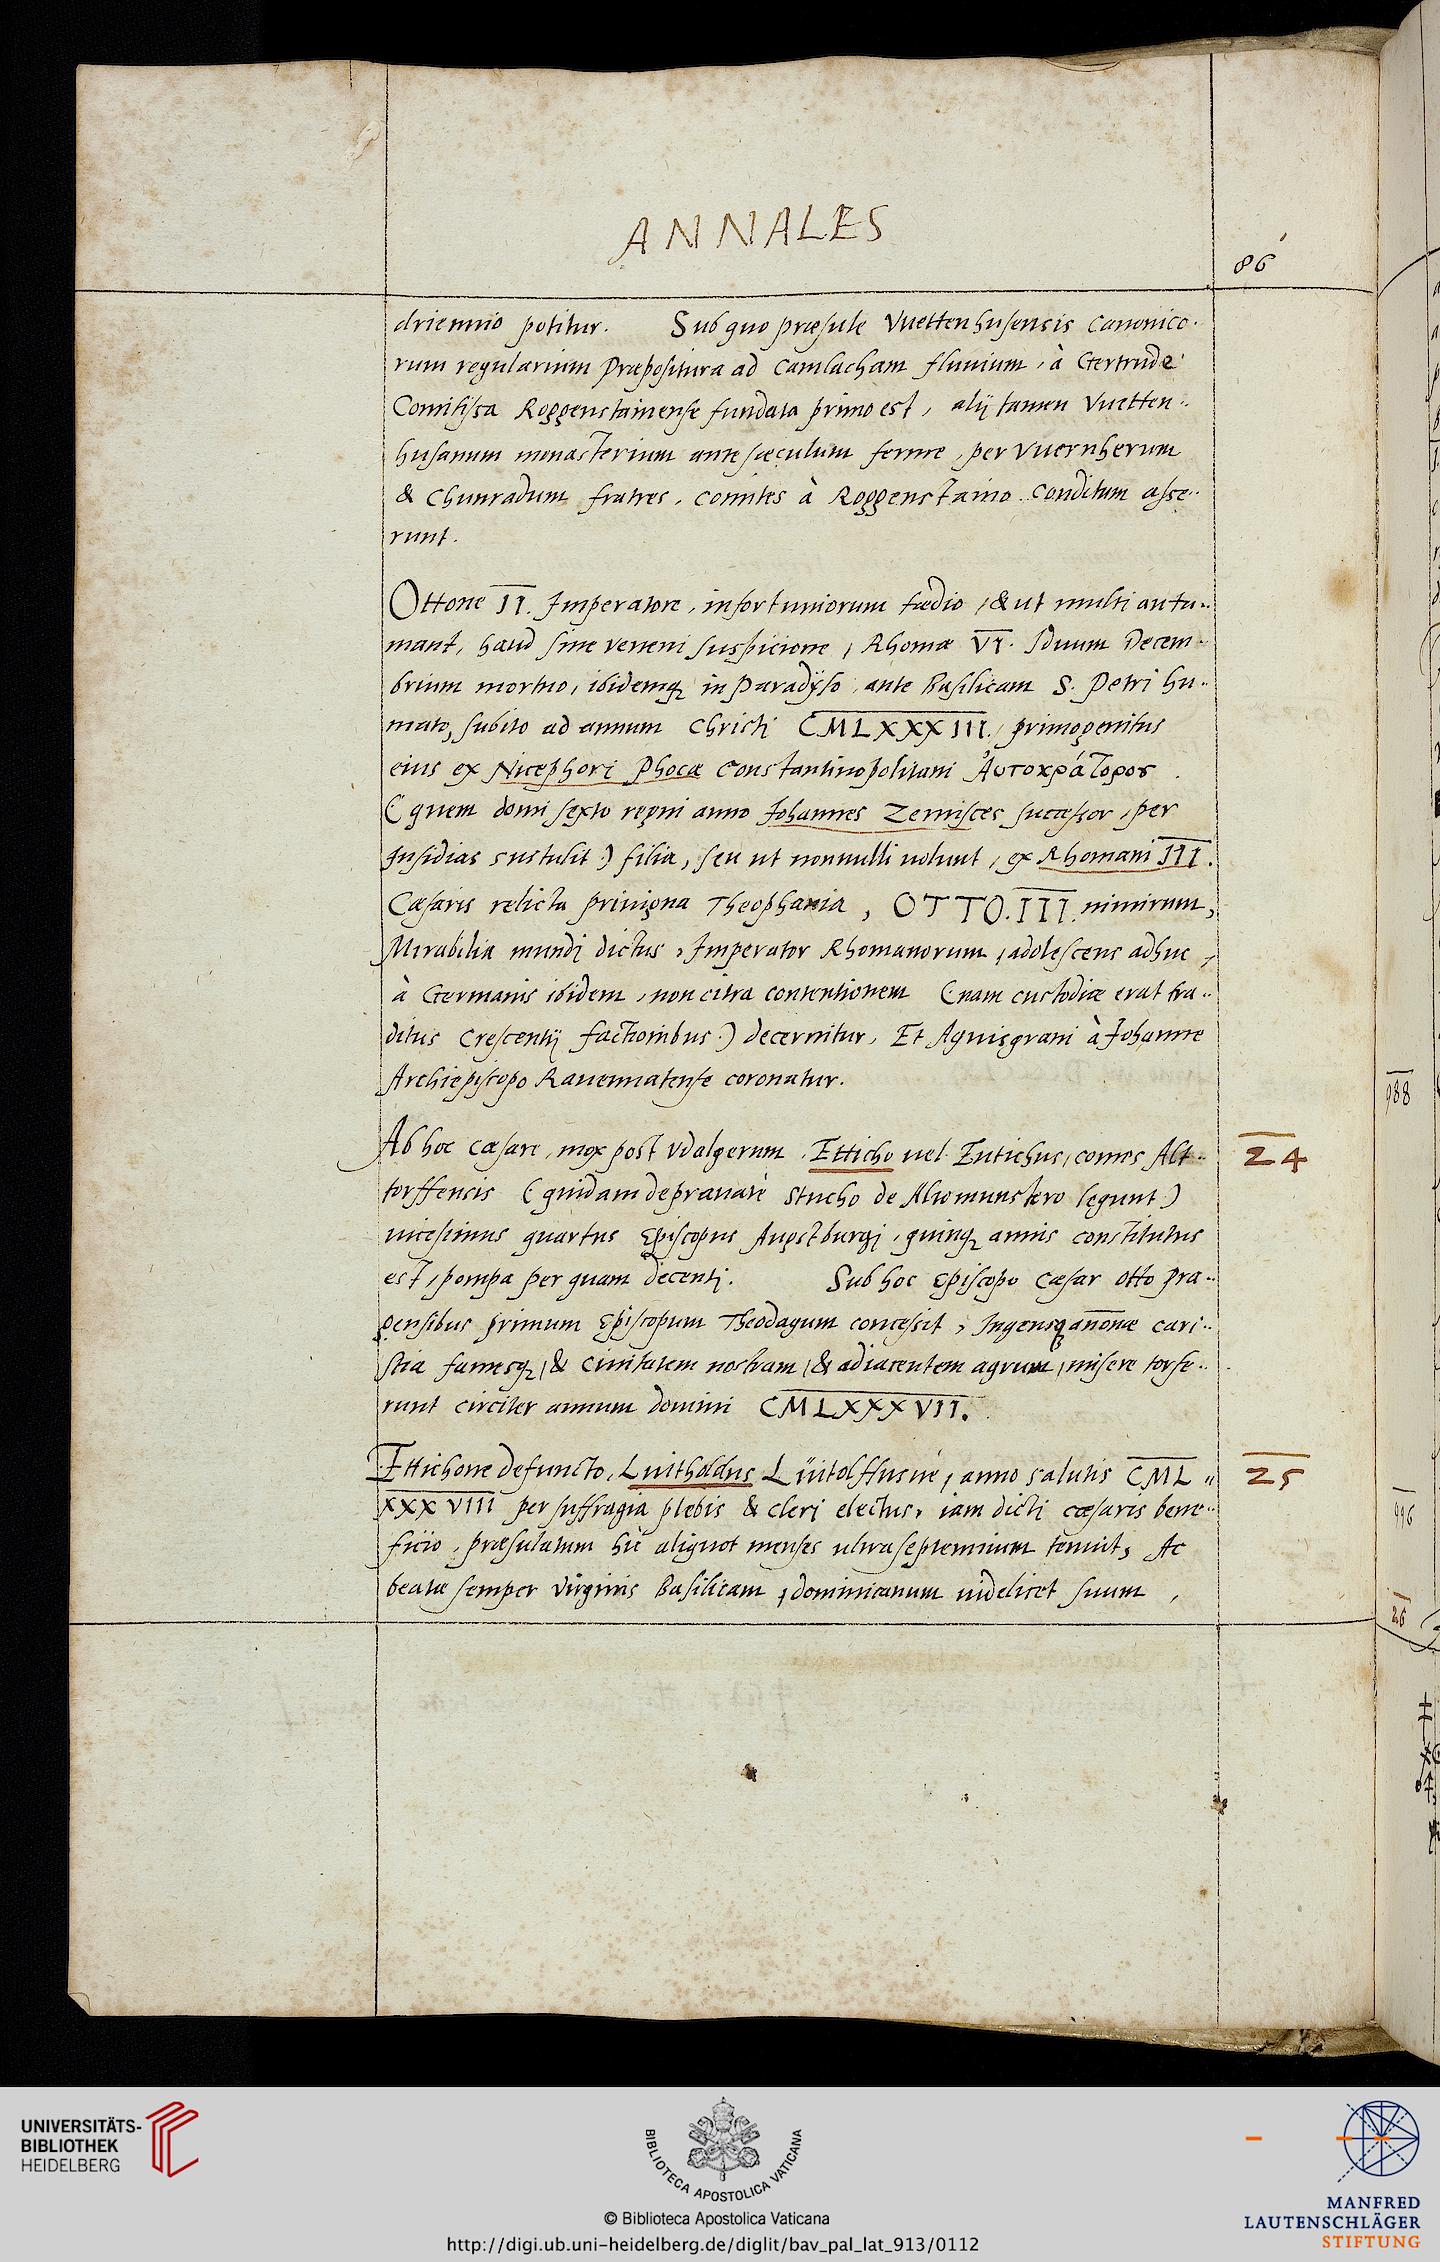 ANNALES
86
driennio potitur. Sub quo præsule Vuettenhusensis Canonico-
rum regularium Præpositura ad Camlacham fluuium, à Gertrude
Comitissa Roggenstainense fundata primo est, alij tamen Vuetten-
husanum monasterium ante sæculum ferme, per Vuernherum
& Chunradum fratres, comites à Roggenstaino conditum asse-
runt.
Ottone II. Imperatore, infortuniorum tædio, & ut multi autu-
mant, haud sine veneni suspicione, Rhomæ VI. Iduum Decem-
brium mortuo, ibidemq in Paradyso, ante Basilicam S. Petri hu-
mato, subito ad annum Christi CMLXXXIII., primogenitus
eius ex Nicephori Phocæ Constantinopolitani Ἀυτοκράτορος
(quem domi sexto regni anno Iohannes Zemisces successor, per
Insidias sustulit) filia, seu ut nonnulli uolunt, ex Rhomani III.
Cæsaris relicta priuigna Theophania, OTTO. III. nimirum,
Mirabilia mundi dictus, Imperator Rhomanorum, adolescens adhuc,
à Germanis ibidem, non citra contentionem (nam custodiæ erat tra-
ditus Crescentij factionibus.) decernitur, Et Aquisgrani à Iohanne
Archiepiscopo Rauennatense coronatur.
Ab hoc Cæsare, mox post Vdalgerum, Etticho uel Eutichus, comes Alt-
torffensis (quidam deprauatè Stucho de Altomunstero legunt)
uicesimus quartus Episcopus Augstburgi, quinq annis constitutus
est, pompa per quam decenti. Sub hoc Episcopo Cæsar Otto Pra-
gensibus primum Episcopum Theodagum concessit, Ingensq anonæ cari-
stia famesq, & Ciuitatem nostram, & adiacentem agrum, misere torse-
runt circiter annum domini CMLXXXVII.
24
Ettichone defuncto, Luitholdus Lüitolffusué, anno salutis CML
XXXVIII per suffragia plebis & cleri electus, iam dicti cæsaris bene-
ficio, præsulatum hic aliquot menses ultra septennium tenuit, Ac
beatæ semper Virginis Basilicam, dominicanum uidelicet suum,
25
988
996
26
UNIVERSITÄTS-
BIBLIOTHEK
HEIDELBERG
BIBLIOTECA APOSTOLICA VATICANA
© Biblioteca Apostolica Vaticana
http://digi.ub.uni-heidelberg.de/diglit/bav_pal_lat_913/0112
MANFRED
LAUTENSCHLÄGER
STIFTUNG